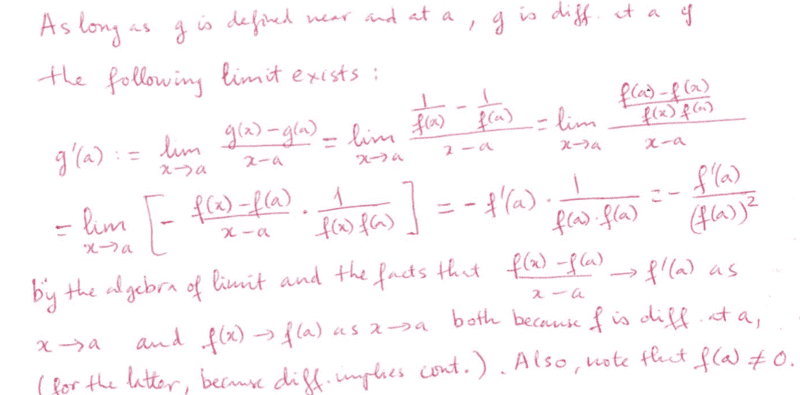 As long as g is defined near and at a, g is diff. at a if
the following limit exists:
g'(a) := lim_{x→a} (g(x)-g(a))/(x-a) = lim_{x→a} (1/f(x) - 1/f(a))/(x-a) = lim_{x→a} ((f(a)-f(x))/(f(x)f(a)))/(x-a)
= lim_{x→a} [ - (f(x)-f(a))/(x-a) · 1/(f(x)f(a)) ] = -f'(a) · 1/(f(a)·f(a)) = - f'(a)/(f(a))²
by the algebra of limit and the facts that (f(x)-f(a))/(x-a) → f'(a) as
x→a and f(x)→f(a) as x→a both because f is diff. at a,
(for the latter, because diff. implies cont.). Also, note that f(a) ≠ 0.